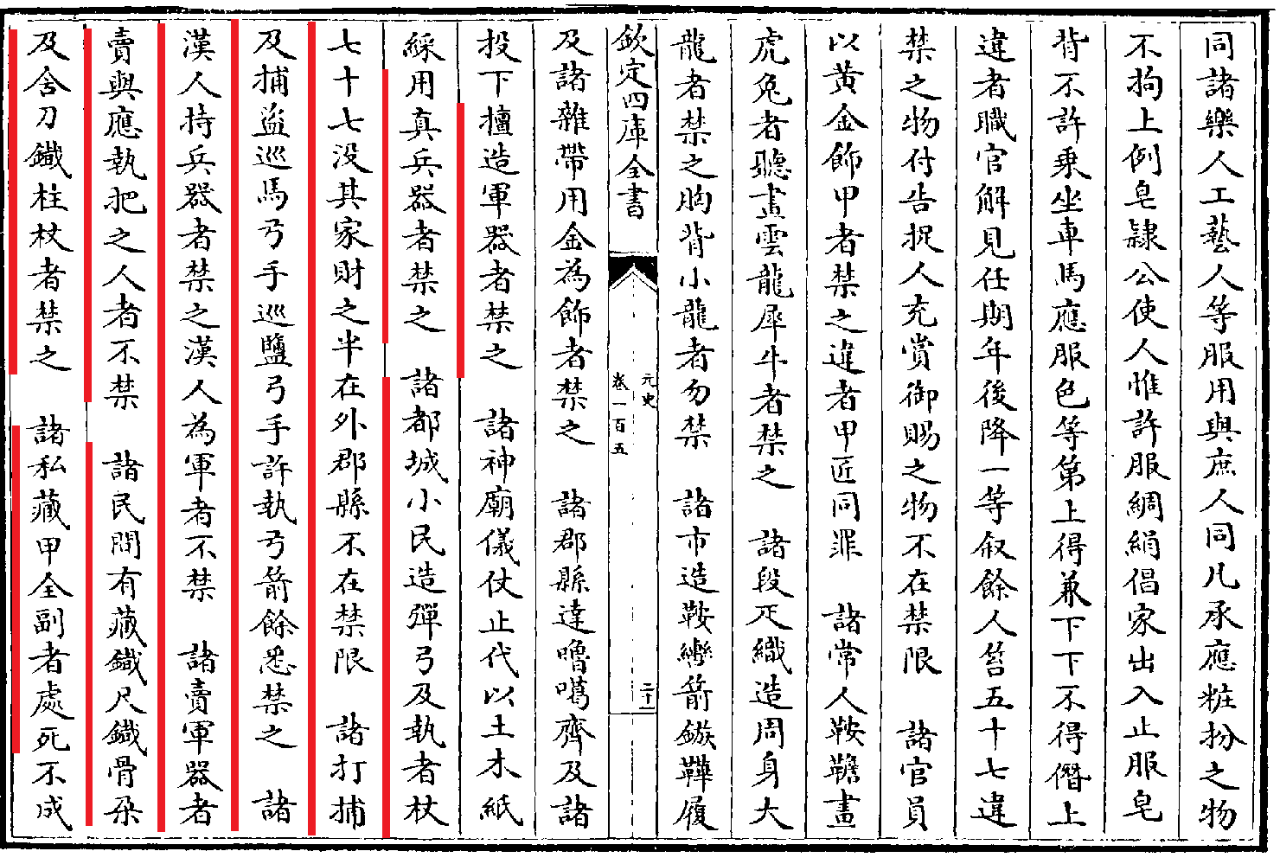 同諸樂人工藝人等服用與庶人同凡承應粧扮之物
不拘上例皂隷公使人惟許服綢絹倡家出入止服皂
背不許乗坐車馬應服色等第上得兼下下不得僭上
違者職官解見任期年後降一等叙餘人笞五十七違
禁之物付告捉人充賞御賜之物不在禁限　諸官員
以黄金飾甲者禁之違者甲匠同罪　諸常人鞍韂畫
虎兔者聽畫雲龍犀牛者禁之　諸段疋織造周身大
龍者禁之胸背小龍者勿禁　諸市造鞍轡箭鏃鞾履
欽定四庫全書
元史
卷一百五
二十
及諸雜帶用金為飾者禁之　諸郡縣達嚕噶齊及諸
投下擅造軍器者禁之　諸神廟儀仗止代以土木紙
綵用真兵器者禁之　諸都城小民造彈弓及執者杖
七十七没其家財之半在外郡縣不在禁限　諸打捕
及捕盗巡馬弓手巡鹽弓手許執弓箭餘悉禁之　諸
漢人持兵器者禁之漢人為軍者不禁　諸賣軍器者
賣與應執把之人者不禁　諸民間有藏鐵尺鐵骨朶
及含刀鐵柱杖者禁之　諸私藏甲全副者處死不成